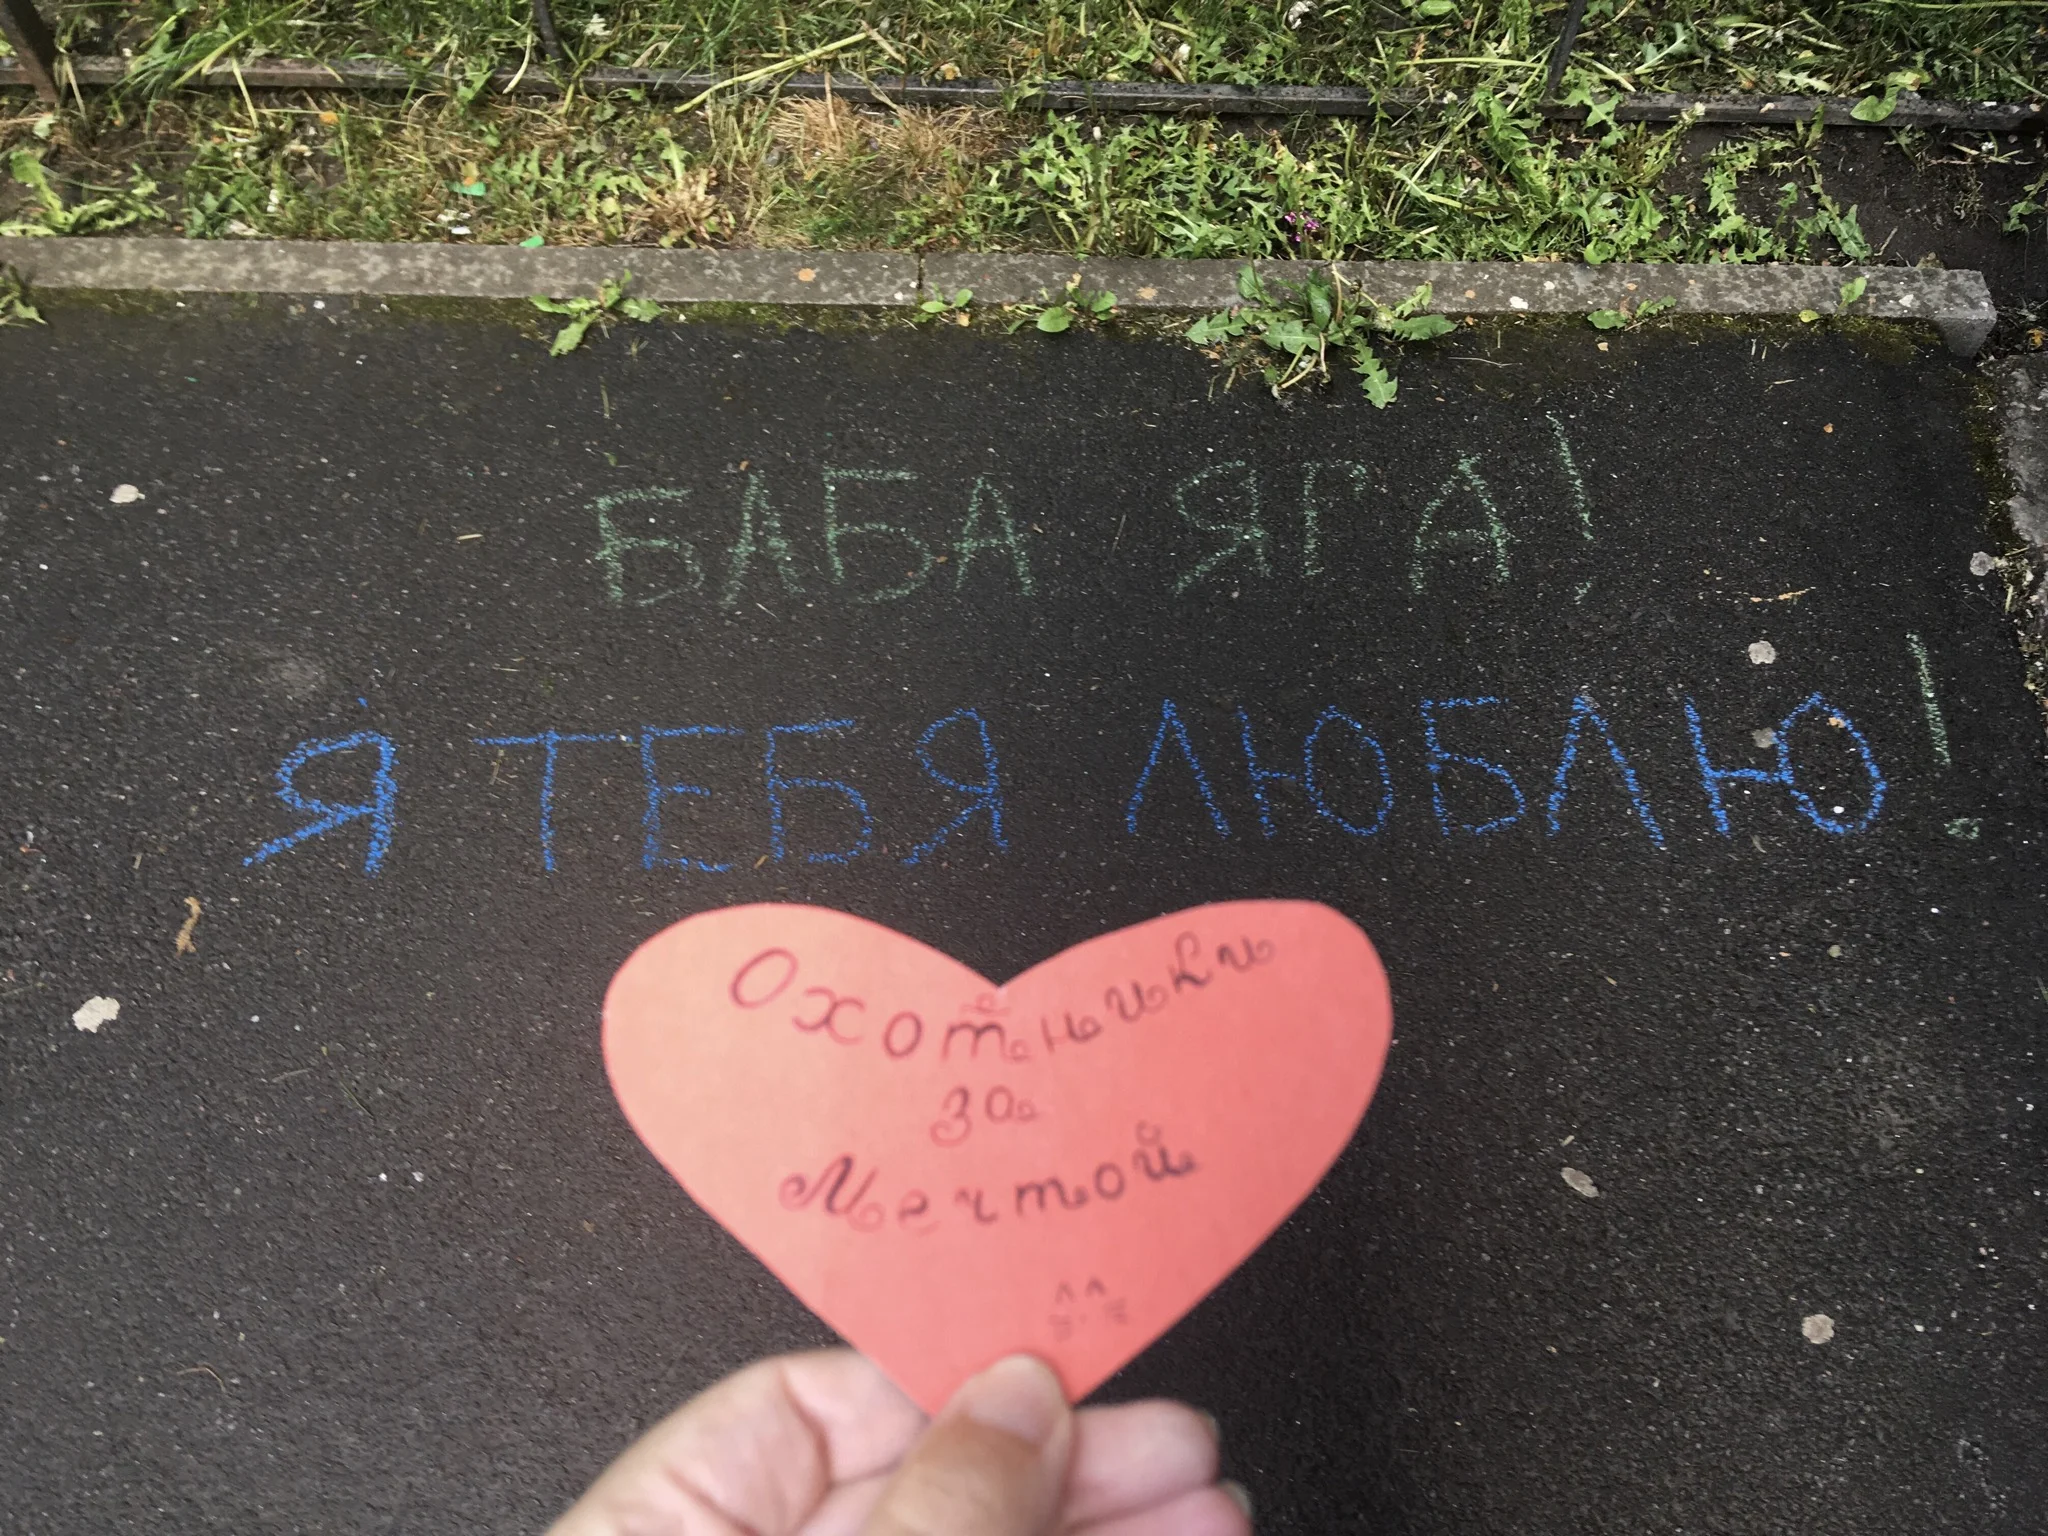 БАБА ЯГА!
Я ТЕБЯ ЛЮБЛЮ!
Охотники
за
Мечтой